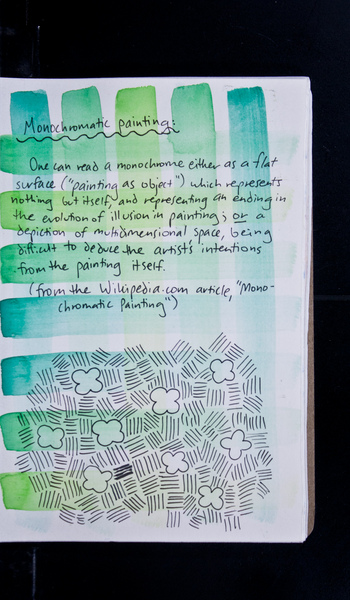 Monochromatic painting:
One can read a monochrome either as a flat
surface ("painting as object") which represents
nothing but itself, and representing an ending in
the evolution of illusion in painting; or a
depiction of multidimensional space, being
difficult to deduce the artist's intentions
from the painting itself.
(from the Wikipedia.com article, "Mono-
chromatic Painting")